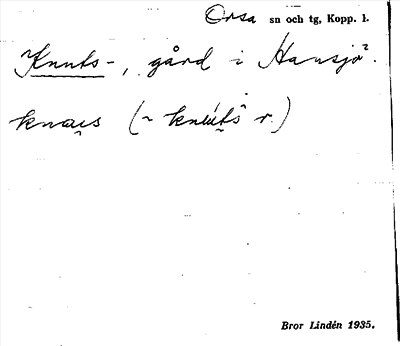 Orsa sn och tg, Kopp. l.
Knuts-, gård i Hansjö.
(~ r.)
Bror Lindén 1935.